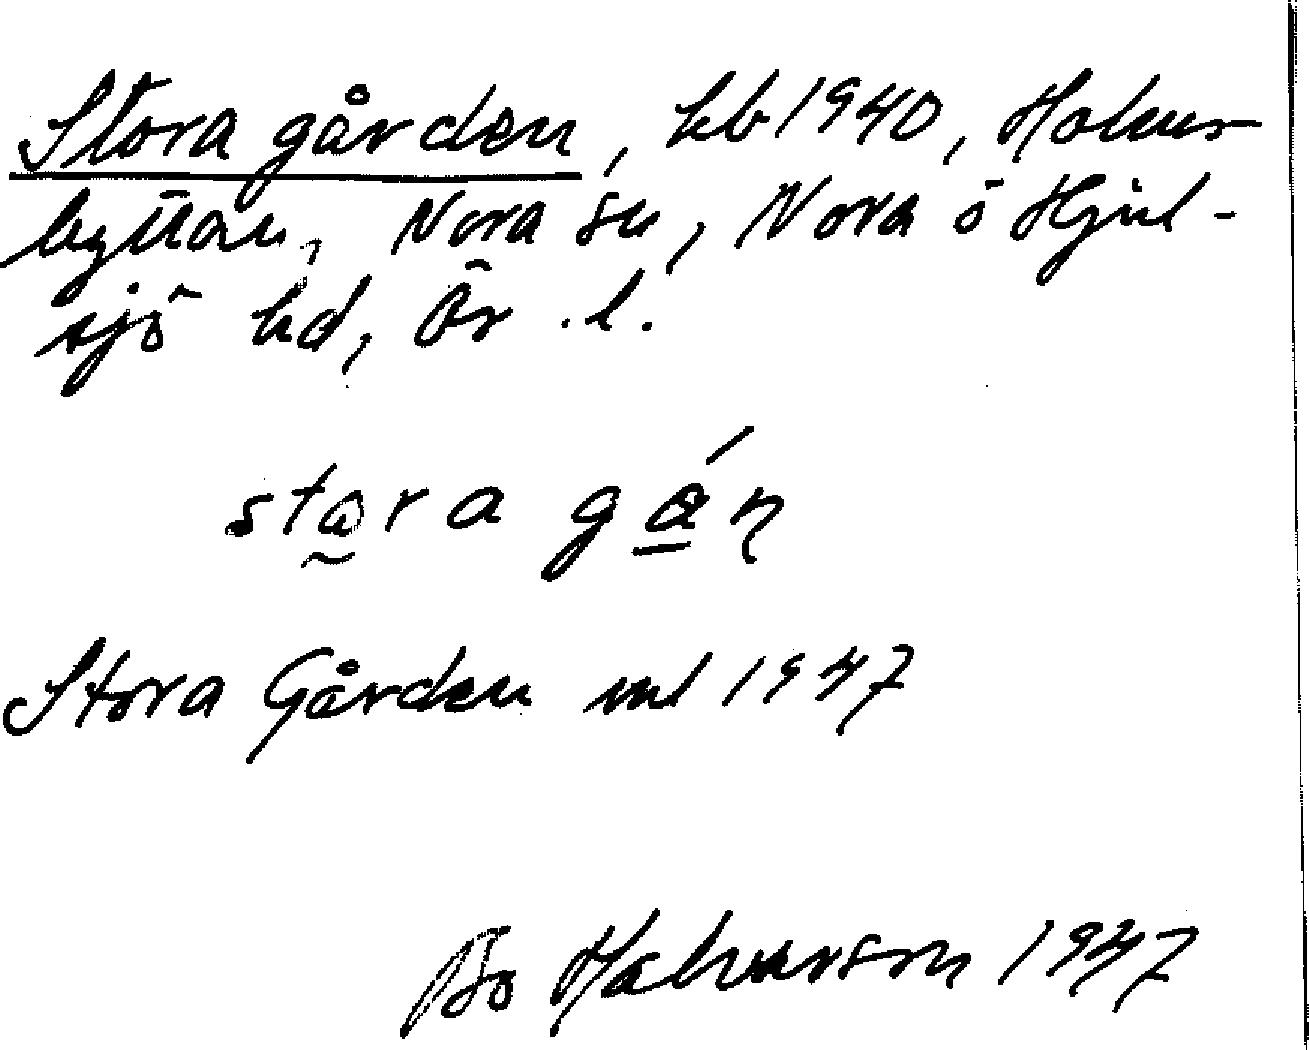 Stora gården, kb 1940, Halvars-
hyttan, Nora sn, Nora o Hjul-
sjö hd, Ör. l.
stara gán
Stora Gården ml 1947
Bo Halvarson 1947